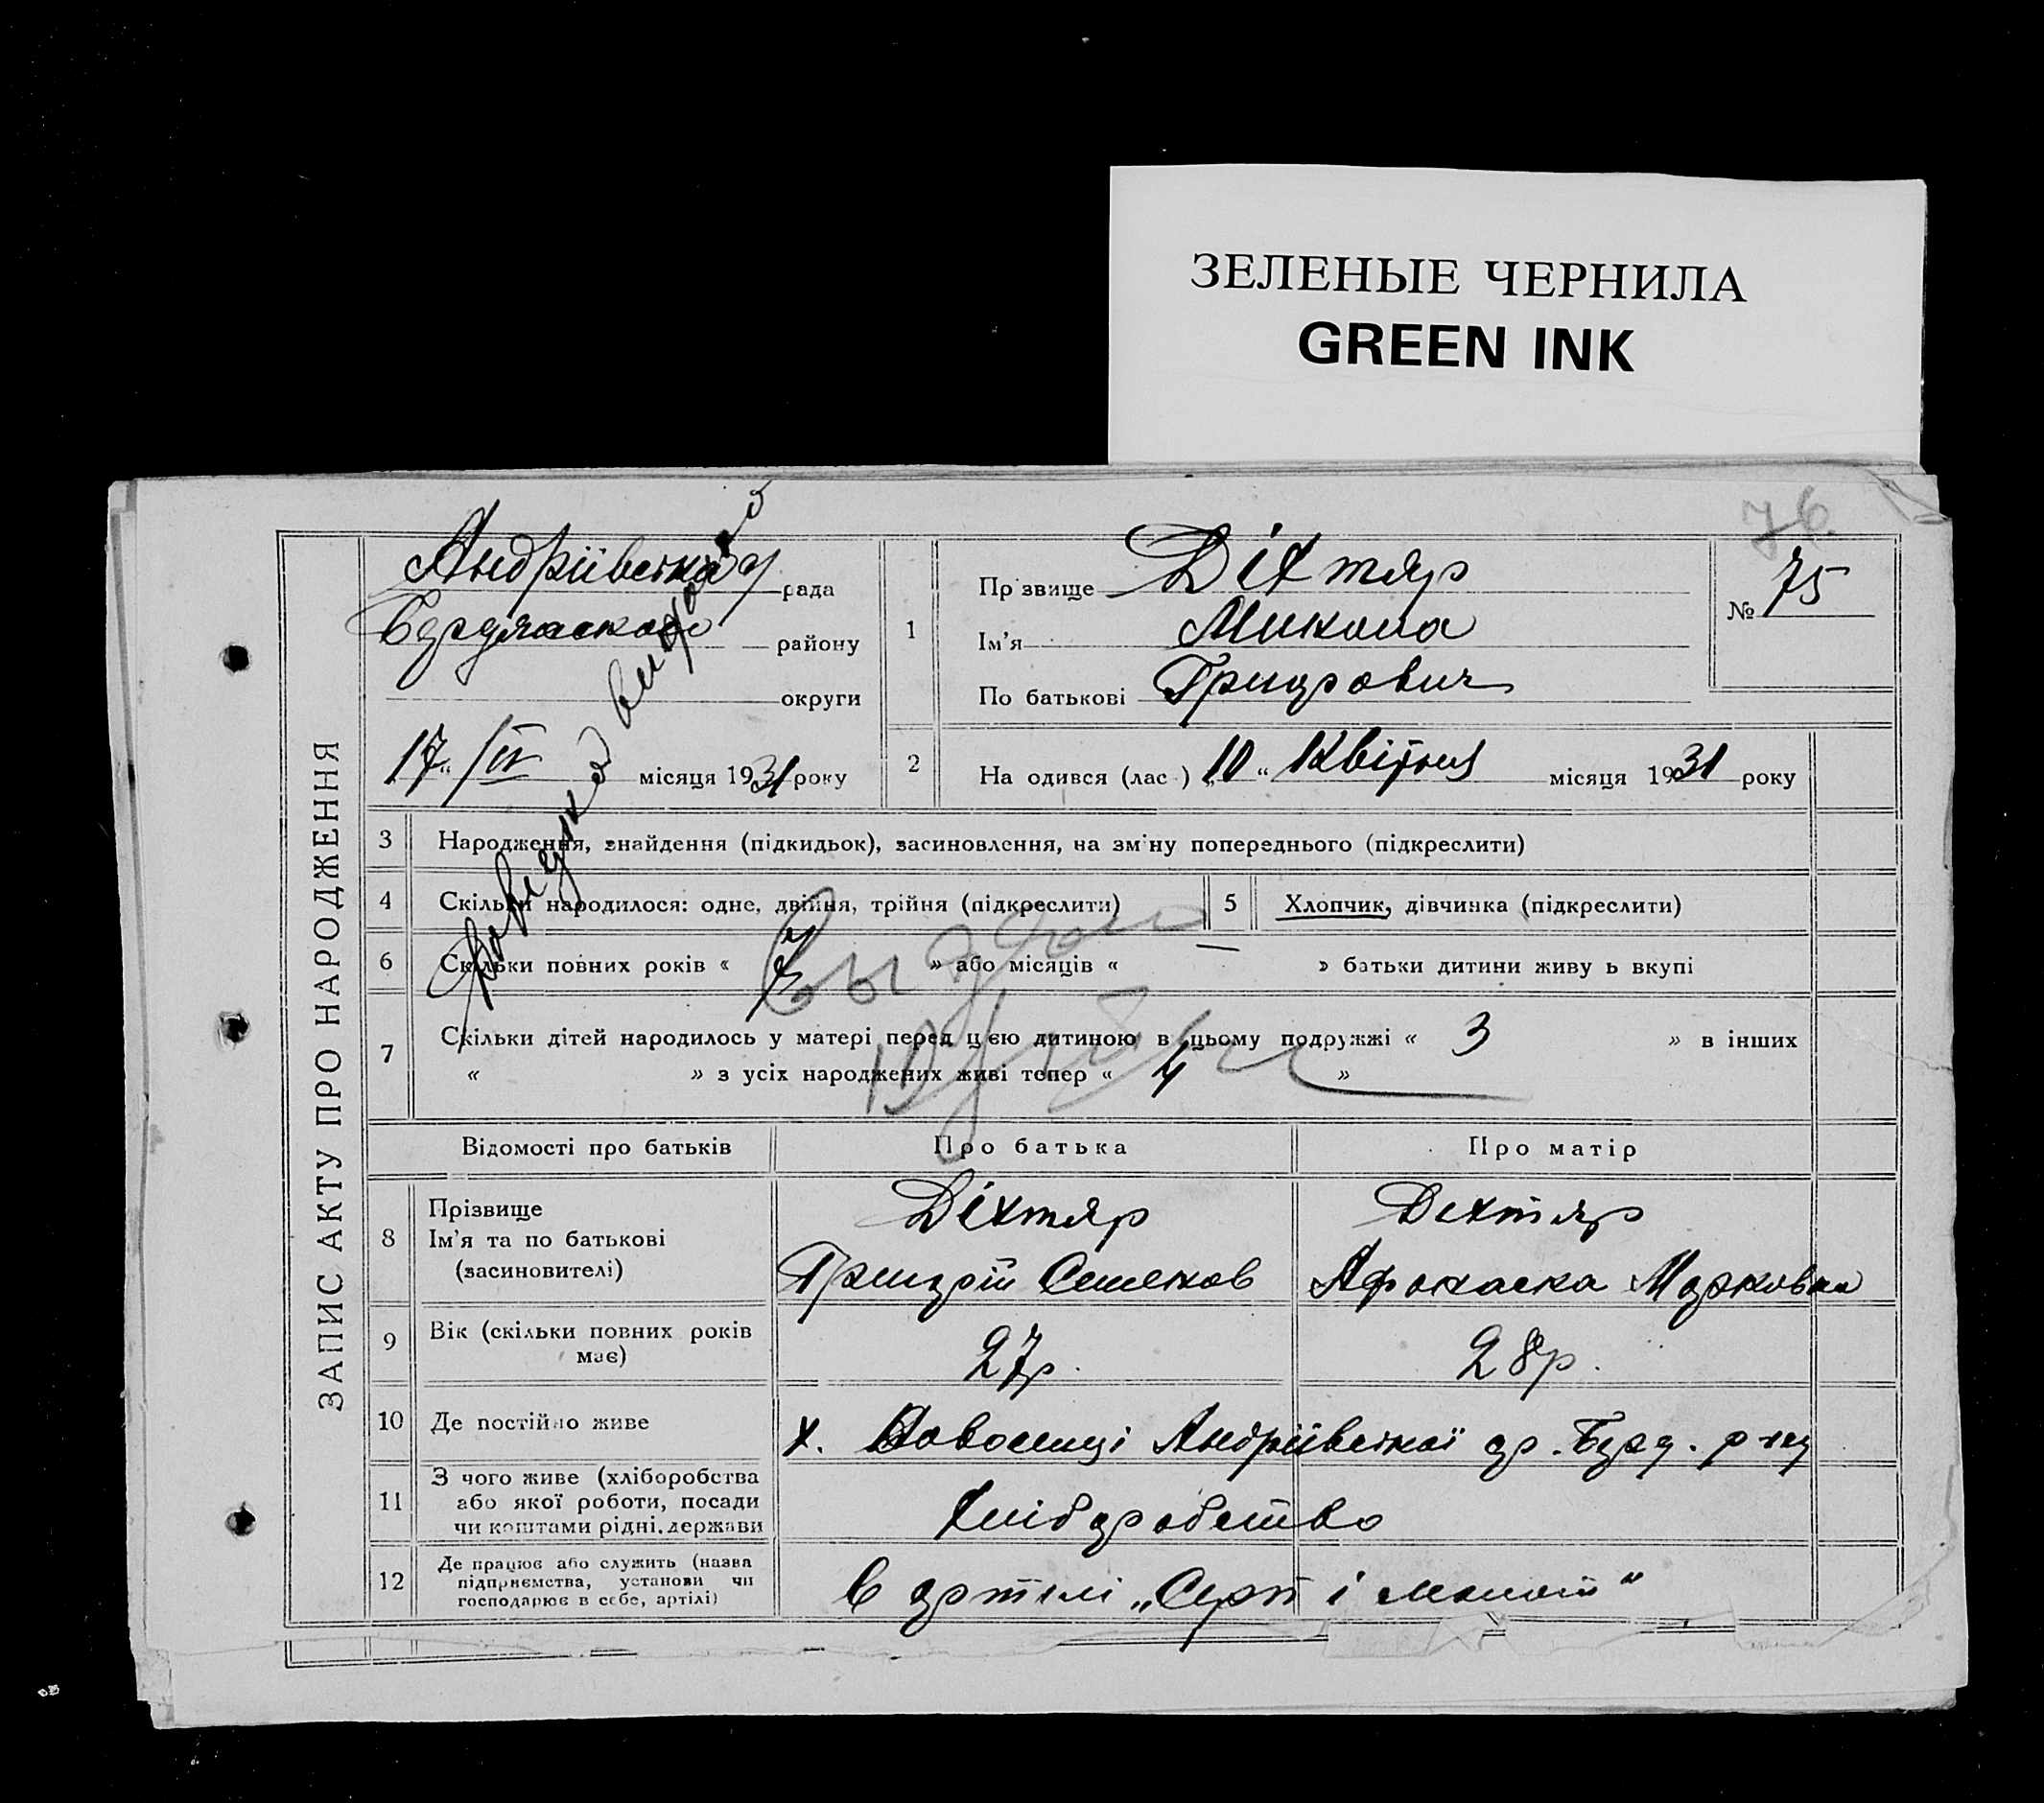 ЗЕЛЕНЫЕ ЧЕРНИЛА
GREEN INK
76.
ЗАПИС АКТУ ПРО НАРОДЖЕННЯ
Андріївська рада
району
округи
17 "/IV місяця 1931 року
1
Прізвище Діхтяр
Ім'я Микола
По батькові Григрович
№ 75
2
На одився (лас ) „10 " Квітня місяця 1931 року
3 Народження, знайдення (підкидьок), засиновлення, на зміну попереднього (підкреслити)
4 Скільки народилося: одне, двійня, трійня (підкреслити)
5 Хлопчик, дівчинка (підкреслити)
6 Скільки повних років « » або місяців « — » батьки дитини живу ь вкупі
7 Скільки дітей народилось у матері перед цією дитиною в цьому подружжі « 3 » в інших
« » з усіх народжених живі тепер « 4 »
Довідка видана
Відомості про батьків Про батька Про матір
8 Прізвище
Ім'я та по батькові
(засиновителі)
Діхтяр
Григрій Семенов
Дехтяр
Марковна
9 Вік (скільки повних років має)
27р.
28р.
10 Де постійно живе
х. Новоселиці Андріївської др. Берд. р-ну
11 З чого живе (хліборобства
або якої роботи, посади
чи коштами рідні, держави
Хліборобство
12 Де працює або служить (назва
підприємства, установи чи
господарює в себе, артілі)
в артелі „Серп і молот"